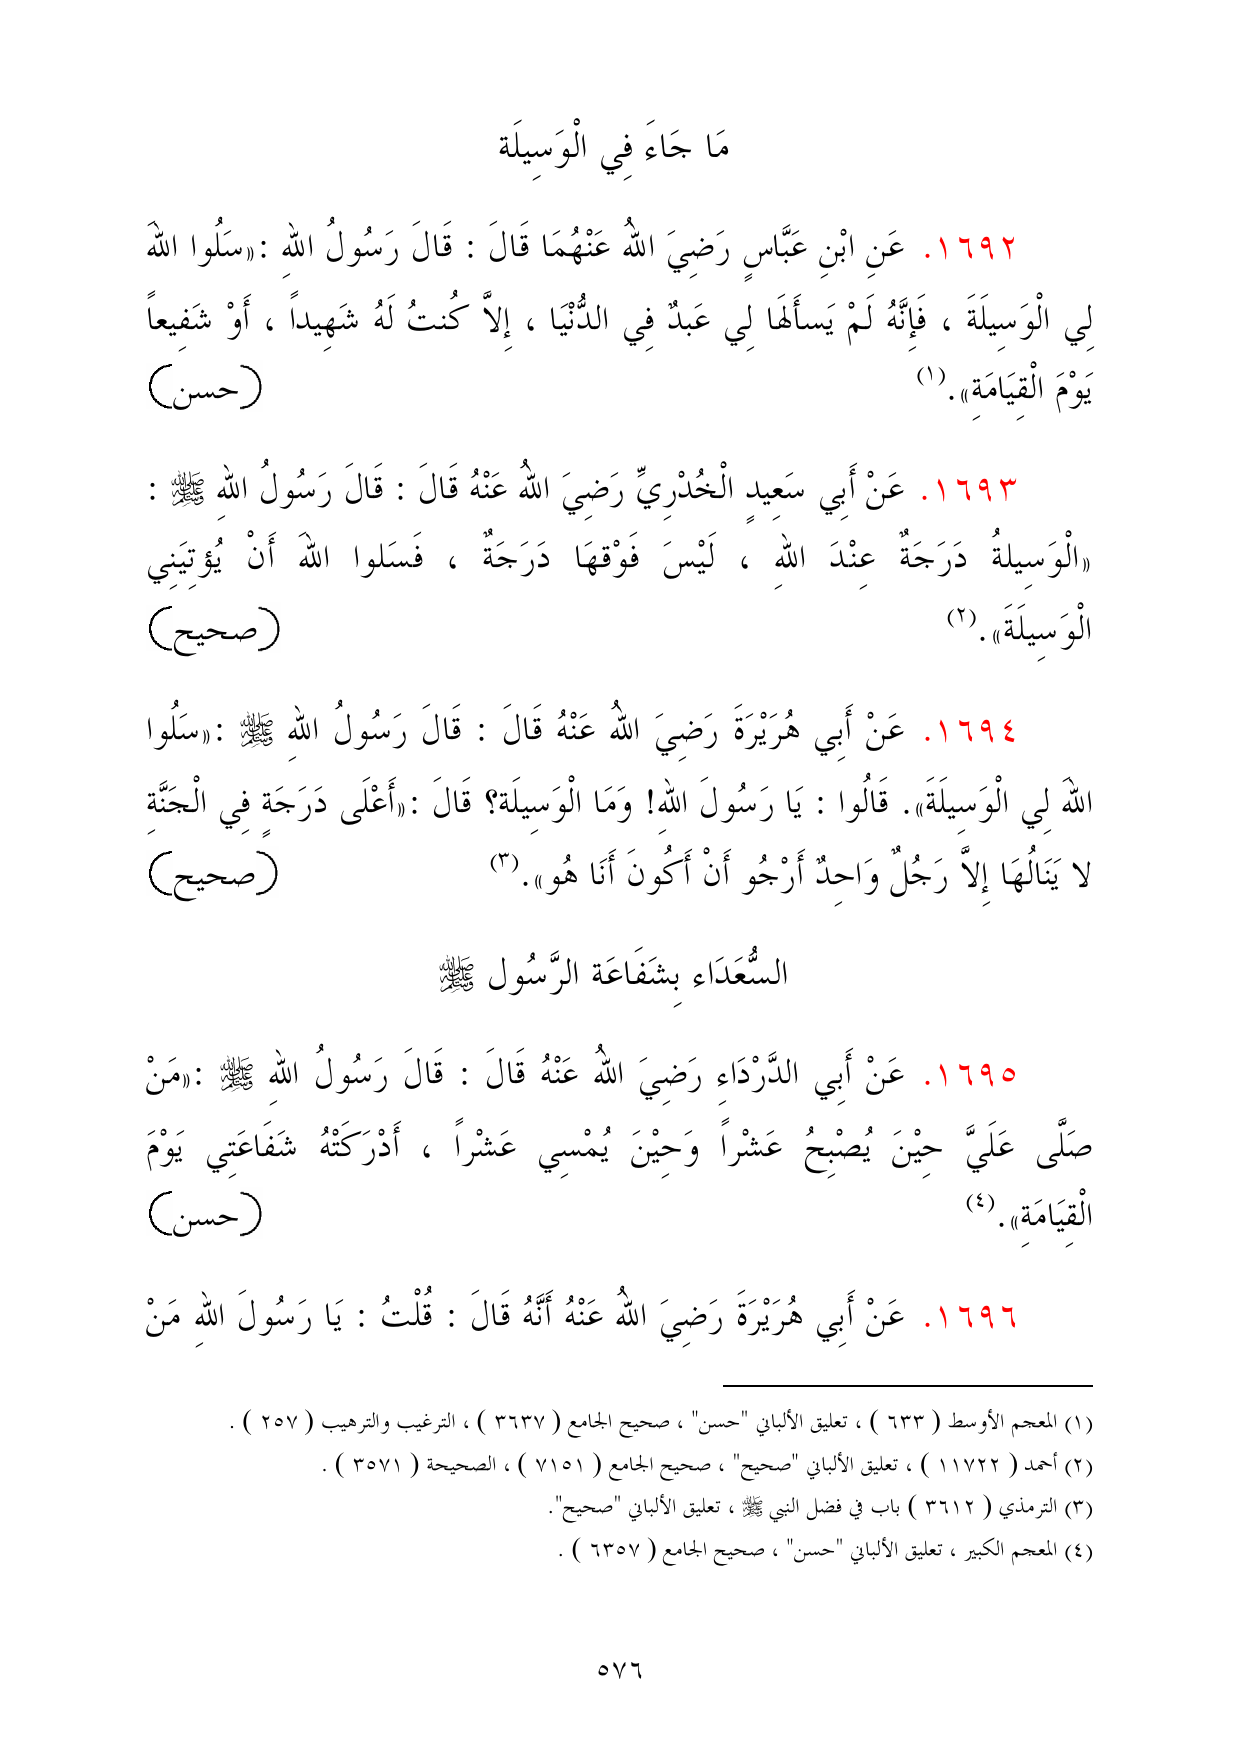 مَا جَاءَ فِي الْوَسِيلَة
١٦٩٢. عَنِ ابْنِ عَبَّاسٍ رَضِيَ اللهُ عَنْهُمَا قَالَ : قَالَ رَسُولُ اللهِ :«سَلُوا اللهَ
لِي الْوَسِيلَةَ ، فَإِنَّهُ لَمْ يَسأَلْهَا لِي عَبدٌ فِي الدُّنْيَا ، إِلاَّ كُنتُ لَهُ شَهِيداً ، أَوْ شَفِيعاً
يَوْمَ الْقِيَامَةِ».(١) (حسن)
١٦٩٣. عَنْ أَبِي سَعِيدٍ الْخُدْرِيِّ رَضِيَ اللهُ عَنْهُ قَالَ : قَالَ رَسُولُ اللهِ ﷺ :
«الْوَسِيلةُ دَرَجَةٌ عِنْدَ اللهِ ، لَيْسَ فَوْقهَا دَرَجَةٌ ، فَسَلوا اللهَ أَنْ يُؤتِيَنِي
الْوَسِيلَةَ».(٢) (صحيح)
١٦٩٤. عَنْ أَبِي هُرَيْرَةَ رَضِيَ اللهُ عَنْهُ قَالَ : قَالَ رَسُولُ اللهِ ﷺ :«سَلُوا
اللهَ لِي الْوَسِيلَةَ». قَالُوا : يَا رَسُولَ اللهِ! وَمَا الْوَسِيلَة؟ قَالَ :«أَعْلَى دَرَجَةٍ فِي الْجَنَّةِ
لا يَنَالُهَا إِلاَّ رَجُلٌ وَاحِدٌ أَرْجُو أَنْ أَكُونَ أَنَا هُو».(٣) (صحيح)
السُّعَدَاء بِشَفَاعَة الرَّسُول ﷺ
١٦٩٥. عَنْ أَبِي الدَّرْدَاءِ رَضِيَ اللهُ عَنْهُ قَالَ : قَالَ رَسُولُ اللهِ ﷺ :«مَنْ
صَلَّى عَلَيَّ حِيْنَ يُصْبِحُ عَشْراً وَحِيْنَ يُمْسِي عَشْراً ، أَدْرَكَتْهُ شَفَاعَتِي يَوْمَ
الْقِيَامَةِ».(٤) (حسن)
١٦٩٦. عَنْ أَبِي هُرَيْرَةَ رَضِيَ اللهُ عَنْهُ أَنَّهُ قَالَ : قُلْتُ : يَا رَسُولَ اللهِ مَنْ
(١) المعجم الأوسط ( ٦٣٣ ) ، تعليق الألباني "حسن" ، صحيح الجامع ( ٣٦٣٧ ) ، الترغيب والترهيب ( ٢٥٧ ) .
(٢) أحمد ( ١١٧٢٢ ) ، تعليق الألباني "صحيح" ، صحيح الجامع ( ٧١٥١ ) ، الصحيحة ( ٣٥٧١ ) .
(٣) الترمذي ( ٣٦١٢ ) باب في فضل النبي ﷺ ، تعليق الألباني "صحيح".
(٤) المعجم الكبير ، تعليق الألباني "حسن" ، صحيح الجامع ( ٦٣٥٧ ) .
٥٧٦